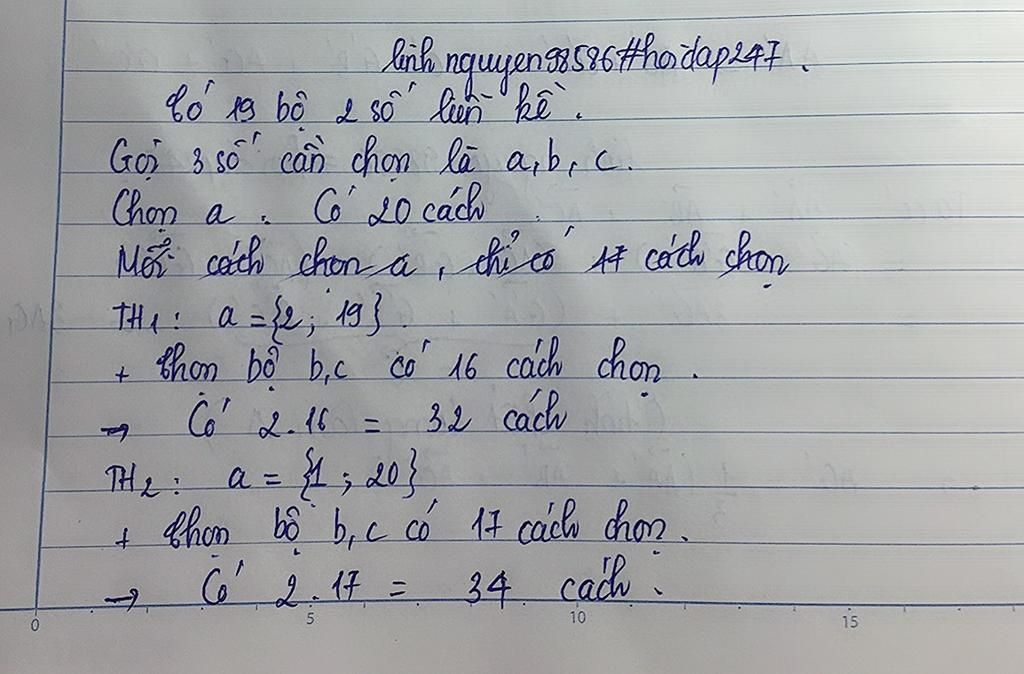 linhnguyen98586#hoidap247.
Có 19 bộ 2 số liền kề.
Gọi 3 số cần chọn là a, b, c.
Chọn a : Có 20 cách
Mỗi cách chọn a, chỉ có 17 cách chọn
TH1: a = {2; 19}.
+ Chọn bộ b,c có 16 cách chọn.
→ Có 2.16 = 32 cách
TH2: a = {1; 20}
+ Chọn bộ b,c có 17 cách chọn.
→ Có 2.17 = 34 cách.
0 5 10 15